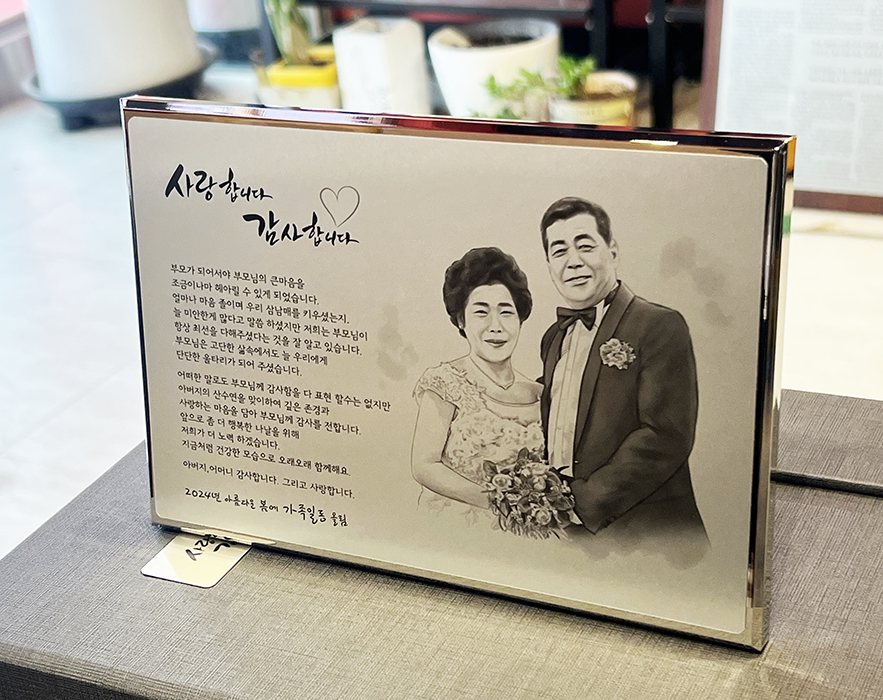 사랑합니다
감사합니다
부모가 되어서야 부모님의 큰마음을
조금이나마 헤아릴 수 있게 되었습니다.
얼마나 마음 졸이며 우리 삼남매를 키우셨는지.
늘 미안한게 많다고 말씀 하셨지만 저희는 부모님이
항상 최선을 다해주셨다는 것을 잘 알고 있습니다.
부모님은 고단한 삶속에서도 늘 우리에게
단단한 울타리가 되어 주셨습니다.
어떠한 말로도 부모님께 감사함을 다 표현 할수는 없지만
아버지의 산수연을 맞이하여 깊은 존경과
사랑하는 마음을 담아 부모님께 감사를 전합니다.
앞으로 좀 더 행복한 나날을 위해
저희가 더 노력 하겠습니다.
지금처럼 건강한 모습으로 오래오래 함께해요.
아버지,어머니 감사합니다. 그리고 사랑합니다.
2024년 아름다운 봄에 가족일동 올림
사랑